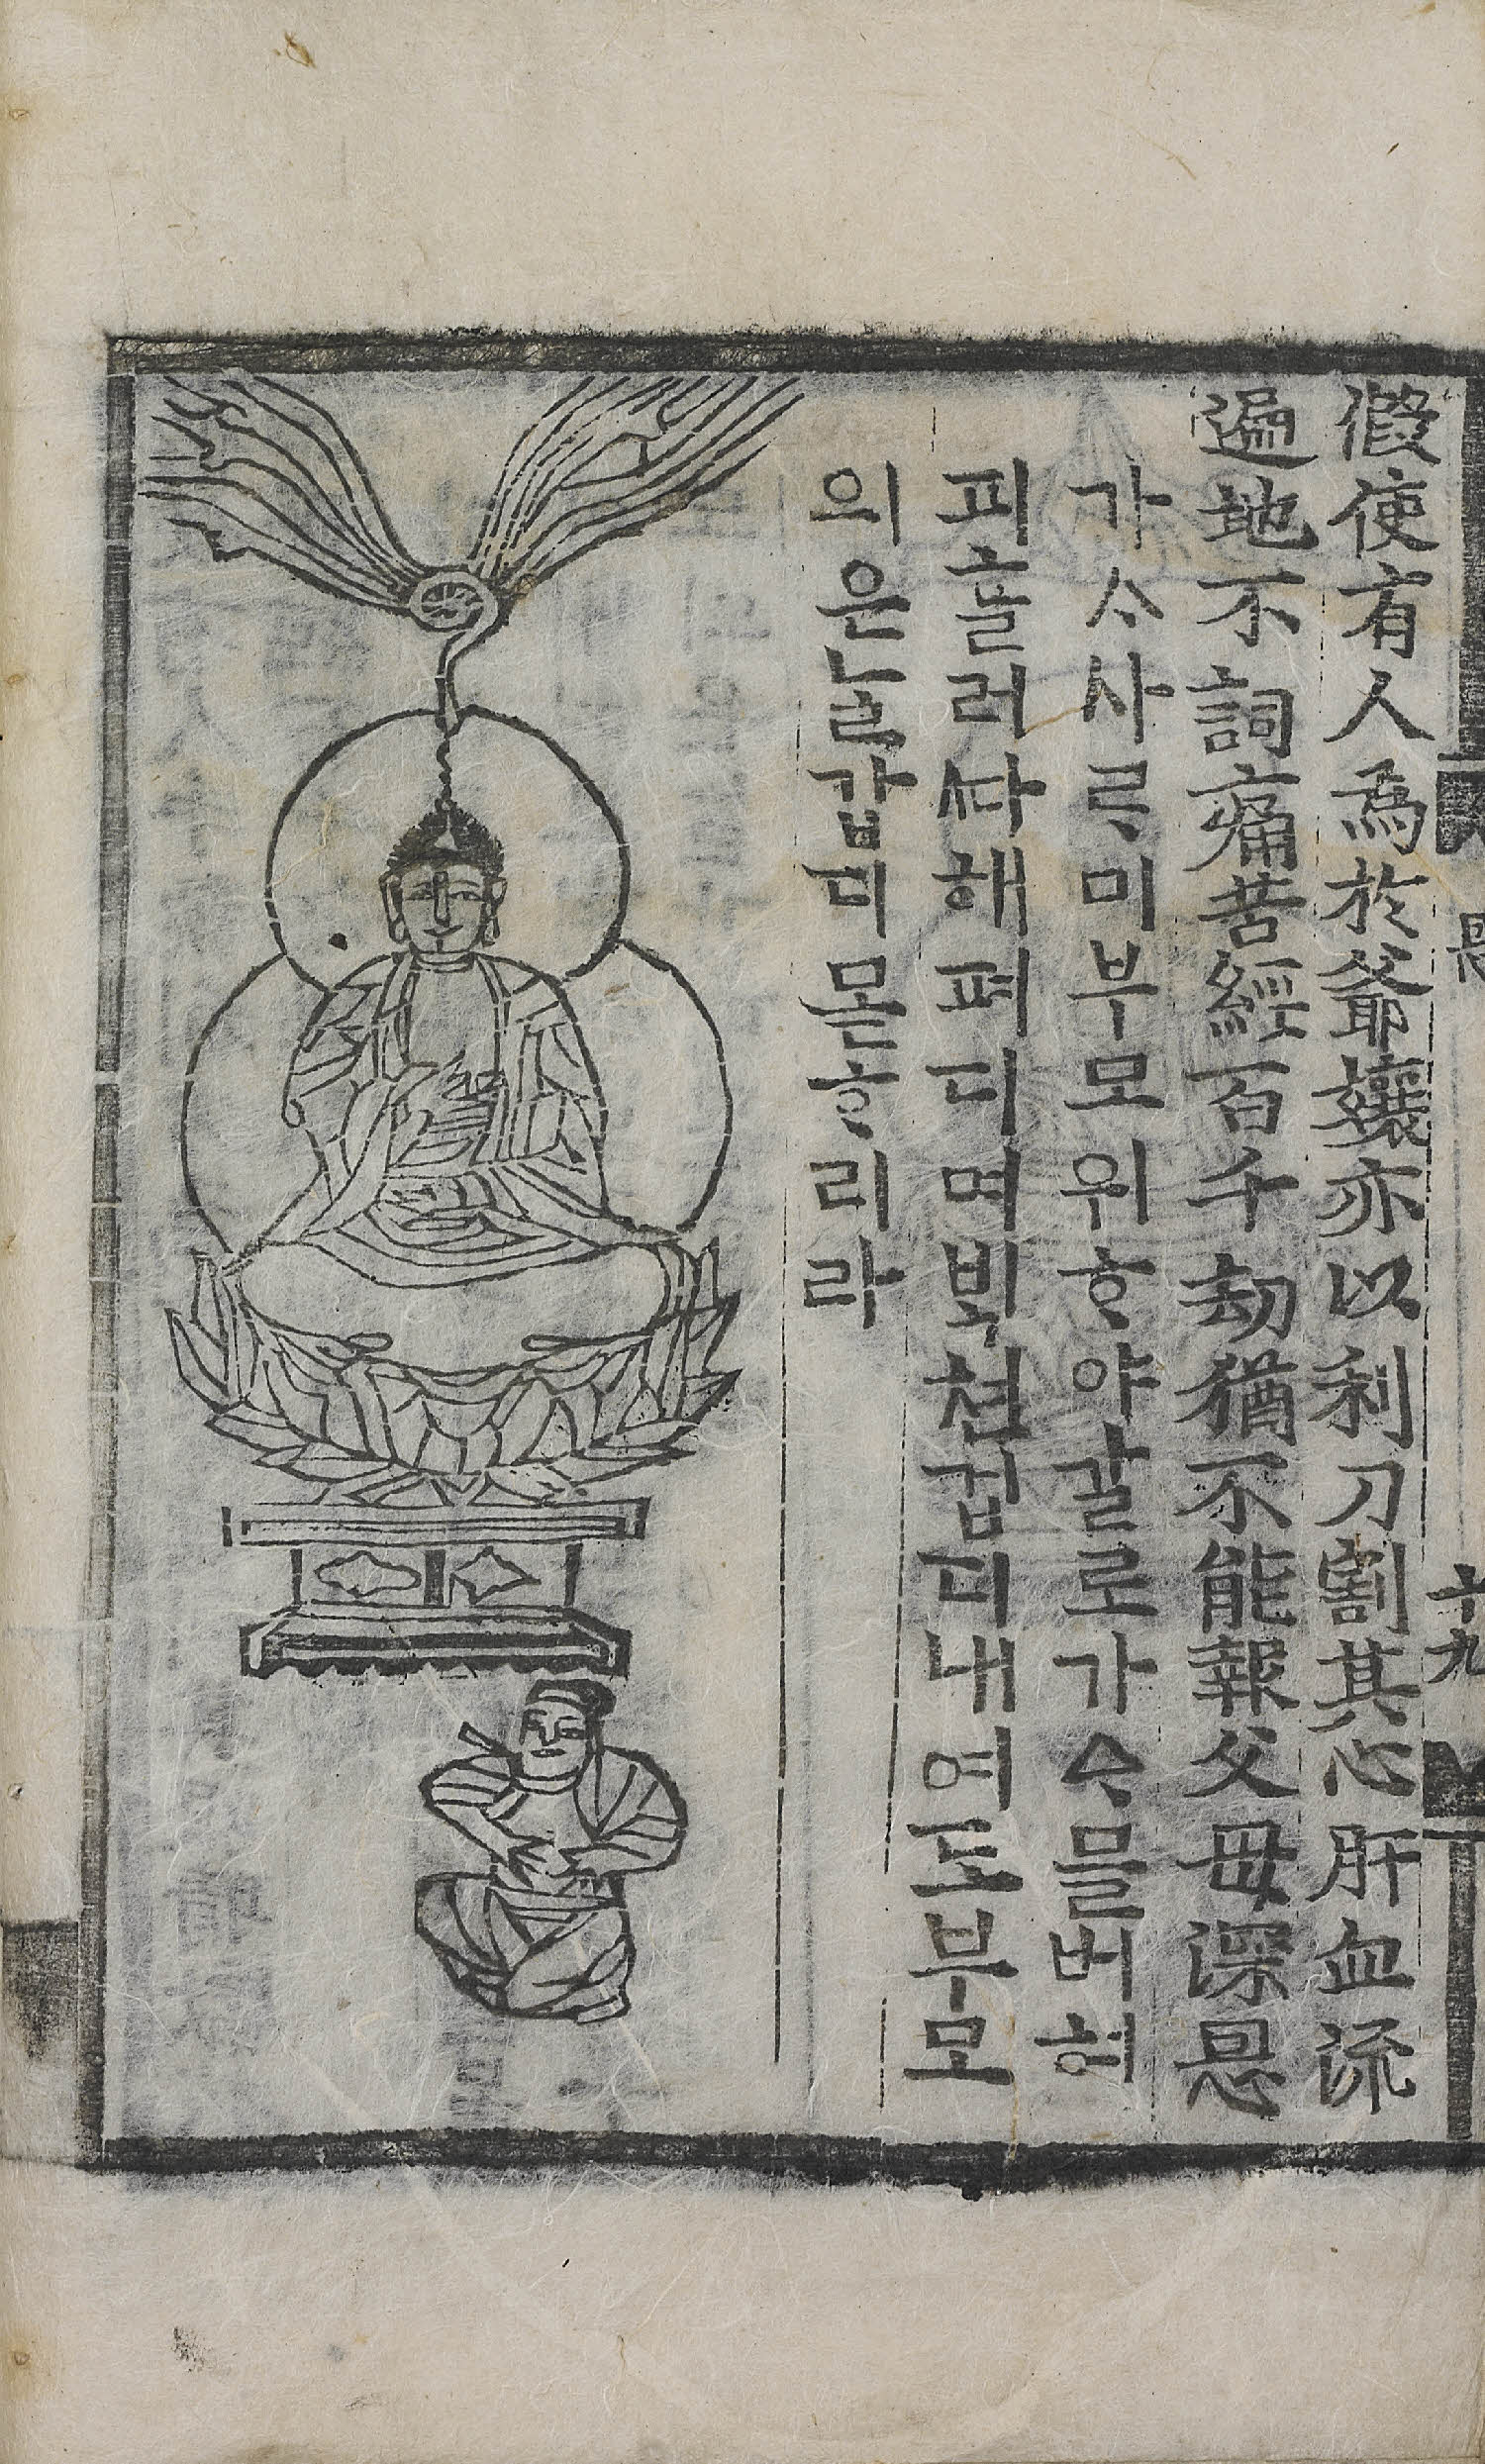 恩 十九
假使有人為於爺孃亦以利刀割其心肝血流
遍地不詞痛苦經百千劫猶不能報父母深恩
가ᄉᆞ사ᄅᆞ미부모위ᄒᆞ야갈로가ᅀᆞ믈버혀
피흘러ᄯᅡ해펴디며ᄇᆡᆨ쳔겁디내여도부모
의은늘갑디몯ᄒᆞ리라